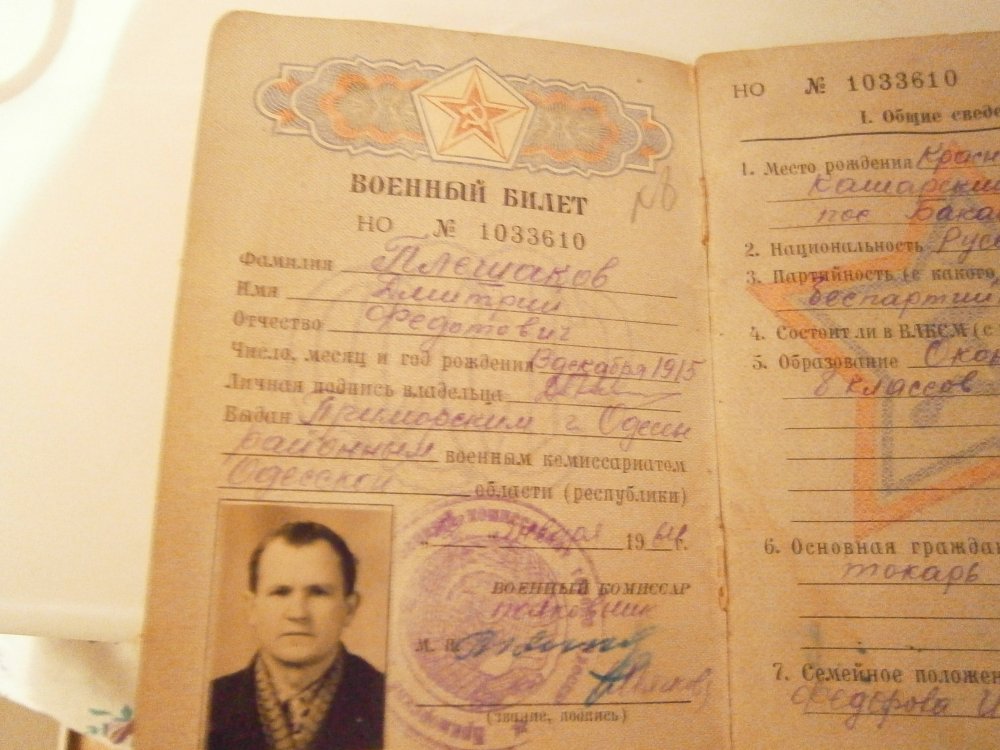 ВОЕННЫЙ БИЛЕТ
НО № 1033610
Фамилия Плешаков
Имя Дмитрий
Отчество Федотович
Число, месяц и год рождения 3 декабря 1915
Личная подпись владельца
Выдан Приморским г. Одессы
районным военным комиссариатом
Одесской области (республики)
января 19 г.
ВОЕННЫЙ КОМИССАР
полковник
М. П.
(звание, подпись)
НО № 1033610
I. Общие сведе
1. Место рождения Красн
Кашарский
пос Бака
2. Национальность Рус
3. Партийность (с какого
беспартий
4. Состоит ли в ВЛКСМ (с
5. Образование Окон
8 классов
6. Основная граждан
токарь
7. Семейное положен
Федорова И